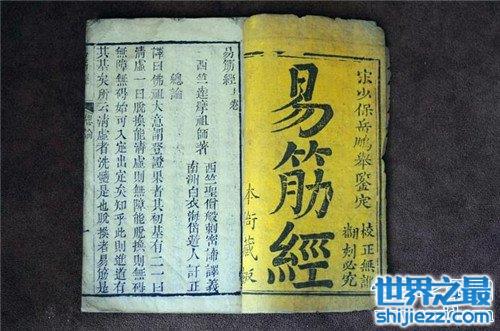 宋少保岳鵬舉鑒定
校正無訛
翻刻必究
易筋經
本衙藏板
易筋經上卷
西竺達摩祖師著
西竺聖僧般剌密諦譯義
南洲白衣海岱遊人訂正
總論
譯曰佛祖大意謂登證果者其初基有二一曰
清虛一曰脫換能清虛則無障能脫換則無碍
無障無碍始可入定出定矣知乎此則進道有
其基矣所云清虛者洗髓是也脫換者易筋是
總論
世界之最
shijiezz.com